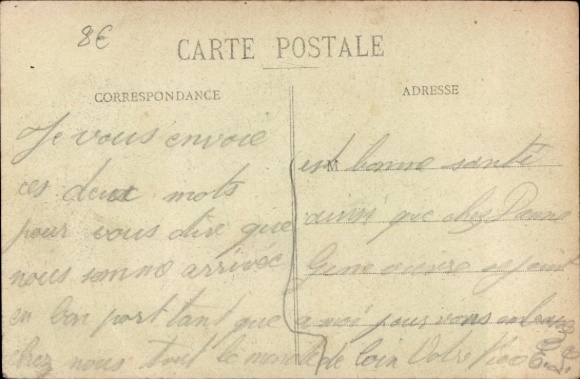 8€
CARTE POSTALE
CORRESPONDANCE
Je vous envoie
ces deux mots
pour vous dire que
nous somme arrivée
en bon port tant que
chez nous tout le monde
ADRESSE
M
est bonne santé
ainsi que chez
Gene
a moi pour vous
de loin Votre